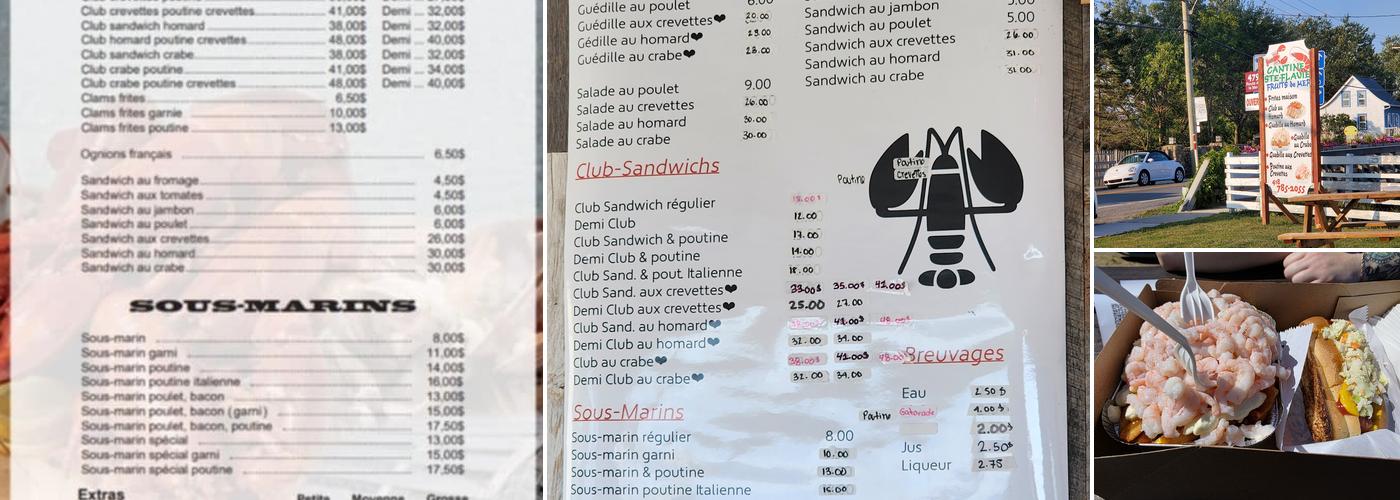 Club crevettes poutine crevettes 41,00$ Demi ... 32,00$
Club sandwich homard 38,00$ Demi ... 32,00$
Club homard poutine crevettes 48,00$ Demi ... 40,00$
Club sandwich crabe 38,00$ Demi ... 32,00$
Club crabe poutine 41,00$ Demi ... 34,00$
Club crabe poutine crevettes 48,00$ Demi ... 40,00$
Clams frites 6,50$
Clams frites garnie 10,00$
Clams frites poutine 13,00$
Ognions français 6,50$
Sandwich au fromage 4,50$
Sandwich aux tomates 4,50$
Sandwich au jambon 6,00$
Sandwich au poulet 6,00$
Sandwich aux crevettes 26,00$
Sandwich au homard 30,00$
Sandwich au crabe 30,00$
SOUS-MARINS
Sous-marin 8,00$
Sous-marin garni 11,00$
Sous-marin poutine 14,00$
Sous-marin poutine italienne 16,00$
Sous-marin poulet, bacon 13,00$
Sous-marin poulet, bacon (garni) 15,00$
Sous-marin poulet, bacon, poutine 17,50$
Sous-marin spécial 13,00$
Sous-marin spécial garni 15,00$
Sous-marin spécial poutine 17,50$
Extras Petite Moyenne Grosse
Guédille au poulet 6.00
Guédille aux crevettes❤ 20.00
Gédille au homard❤ 28.00
Guédille au crabe❤ 28.00
Sandwich au jambon 5.00
Sandwich au poulet 5.00
Sandwich aux crevettes 26.00
Sandwich au homard 31.00
Sandwich au crabe 31.00
Salade au poulet 9.00
Salade au crevettes 26.00
Salade au homard 30.00
Salade au crabe 30.00
Club-Sandwichs
Poutine
Poutine
Crevettes
Club Sandwich régulier
Demi Club 12.00
Club Sandwich & poutine 17.00
Demi Club & poutine 14.00
Club Sand. & pout. Italienne 18.00
Club Sand. aux crevettes❤ 33.00$ 35.00$ 42.00$
Demi Club aux crevettes❤ 25.00 27.00
Club Sand. au homard❤ 38.00$ 41.00$ 48.00$
Demi Club au homard❤ 32.00 34.00
Club au crabe❤ 38.00$ 41.00$ 48.00$
Demi Club au crabe❤ 32.00 34.00
Sous-Marins
Poutine
Sous-marin régulier 8.00
Sous-marin garni 10.00
Sous-marin & poutine 13.00
Sous-marin poutine Italienne 15.00
Breuvages
Eau 2.50$
Gatorade 4.00$
2.00$
Jus 2.50$
Liqueur 2.75
CANTINE
STE-FLAVIE
FRUITS de MER
Frites maison
Club au
Homard
Guédille au Homard
Guédille
au Crabe
Guédille aux Crevettes
Poutine aux
Crevettes
418
785-2055